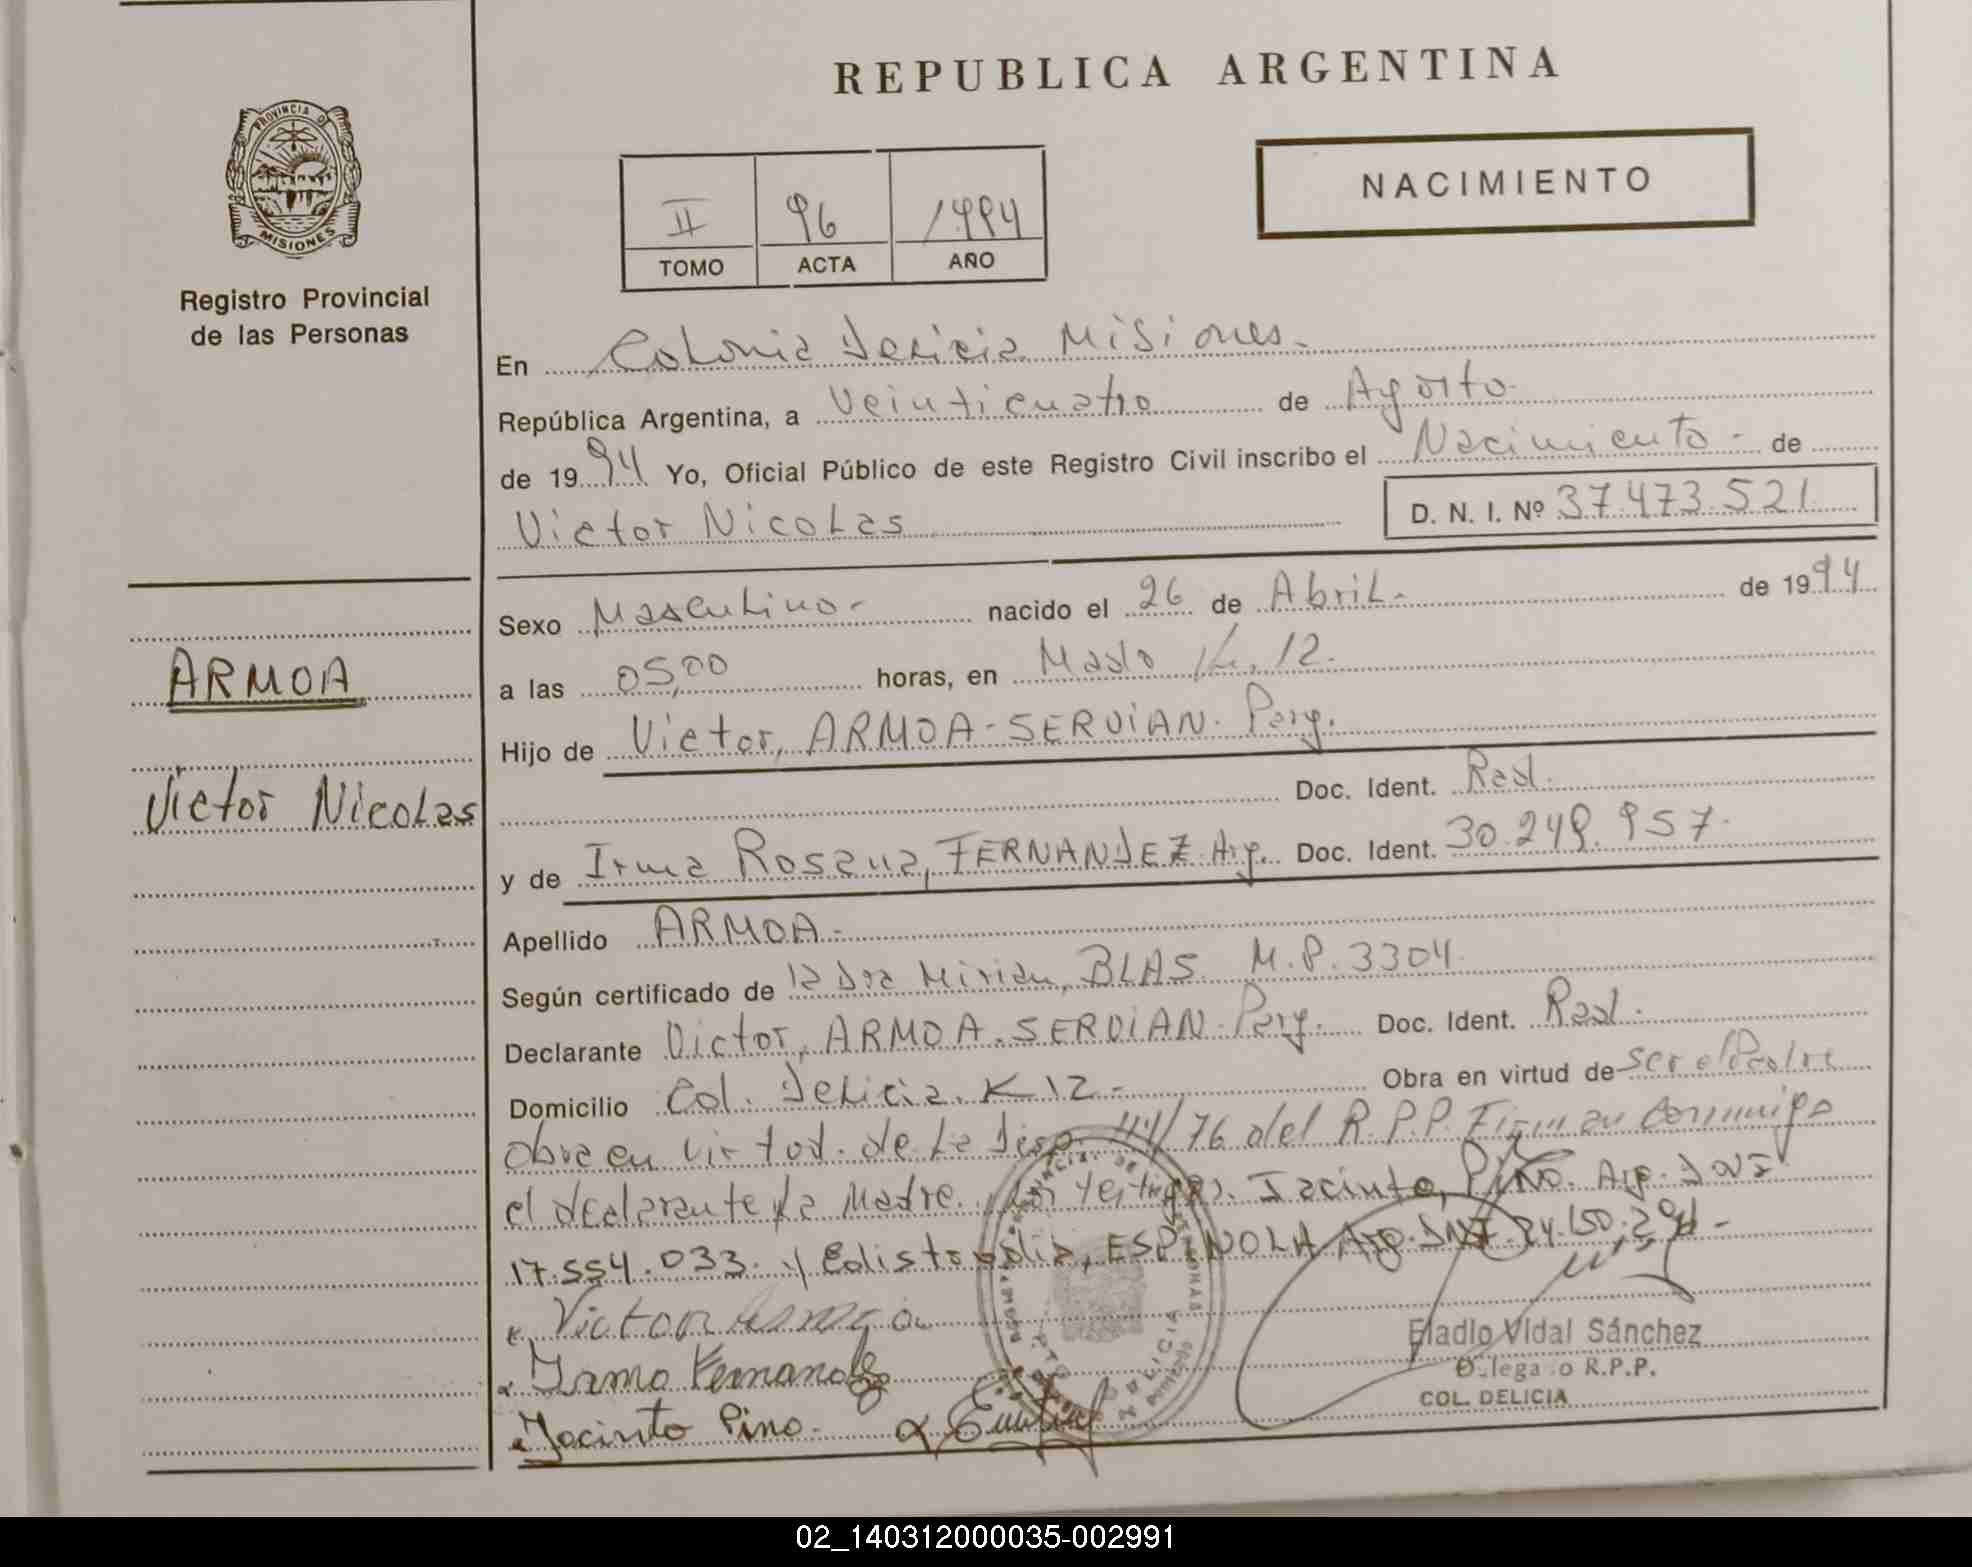 REPUBLICA ARGENTINA
PROVINCIA DE
MISIONES
Registro Provincial
de las Personas
II 96 1994
TOMO ACTA AÑO
NACIMIENTO
En Colonia Delicia Misiones.
República Argentina, a Veinticuatro de Agosto
de 1994 Yo, Oficial Público de este Registro Civil inscribo el Nacimiento - de
Victor Nicolas D. N. I. Nº 37.473.521
ARMOA
Victor Nicolas
Sexo Masculino- nacido el 26 de Abril. de 1994
a las 05,00 horas, en Mado 12.
Hijo de Victor, ARMOA-SERVIAN. Parg.
Doc. Ident. Rad.
y de Irma Rosana, FERNANDEZ. Arg. Doc. Ident. 30.249.957.
Apellido ARMOA.-
Según certificado de la Dra Mirian, BLAS M.P. 3304.
Declarante Victor, ARMOA.SERVIAN. Parg. Doc. Ident. Rad.
Domicilio Col. Delicia. K 12.- Obra en virtud de ser el Padre
obra en virtud. de La Disp. /76 del R.P.P. Firman Conmigo
el declarante La Madre. testigos. Jacinto, PINO. Arg. DNI
17.554.033. y ESPINOLA Arg. DNI. 24.150.
Victor Armoa
Irma Fernandez
Jacinto Pino.
Eladio Vidal Sánchez
Delegado R.P.P.
COL. DELICIA
02_140312000035-002991